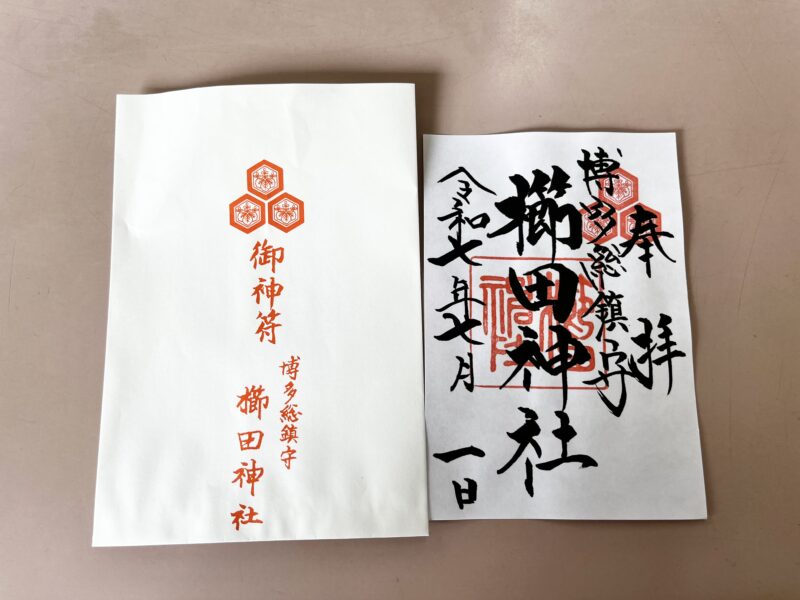 御神符
博多総鎮守
櫛田神社
奉拝
博多総鎮守
櫛田神社
令和七年七月一日